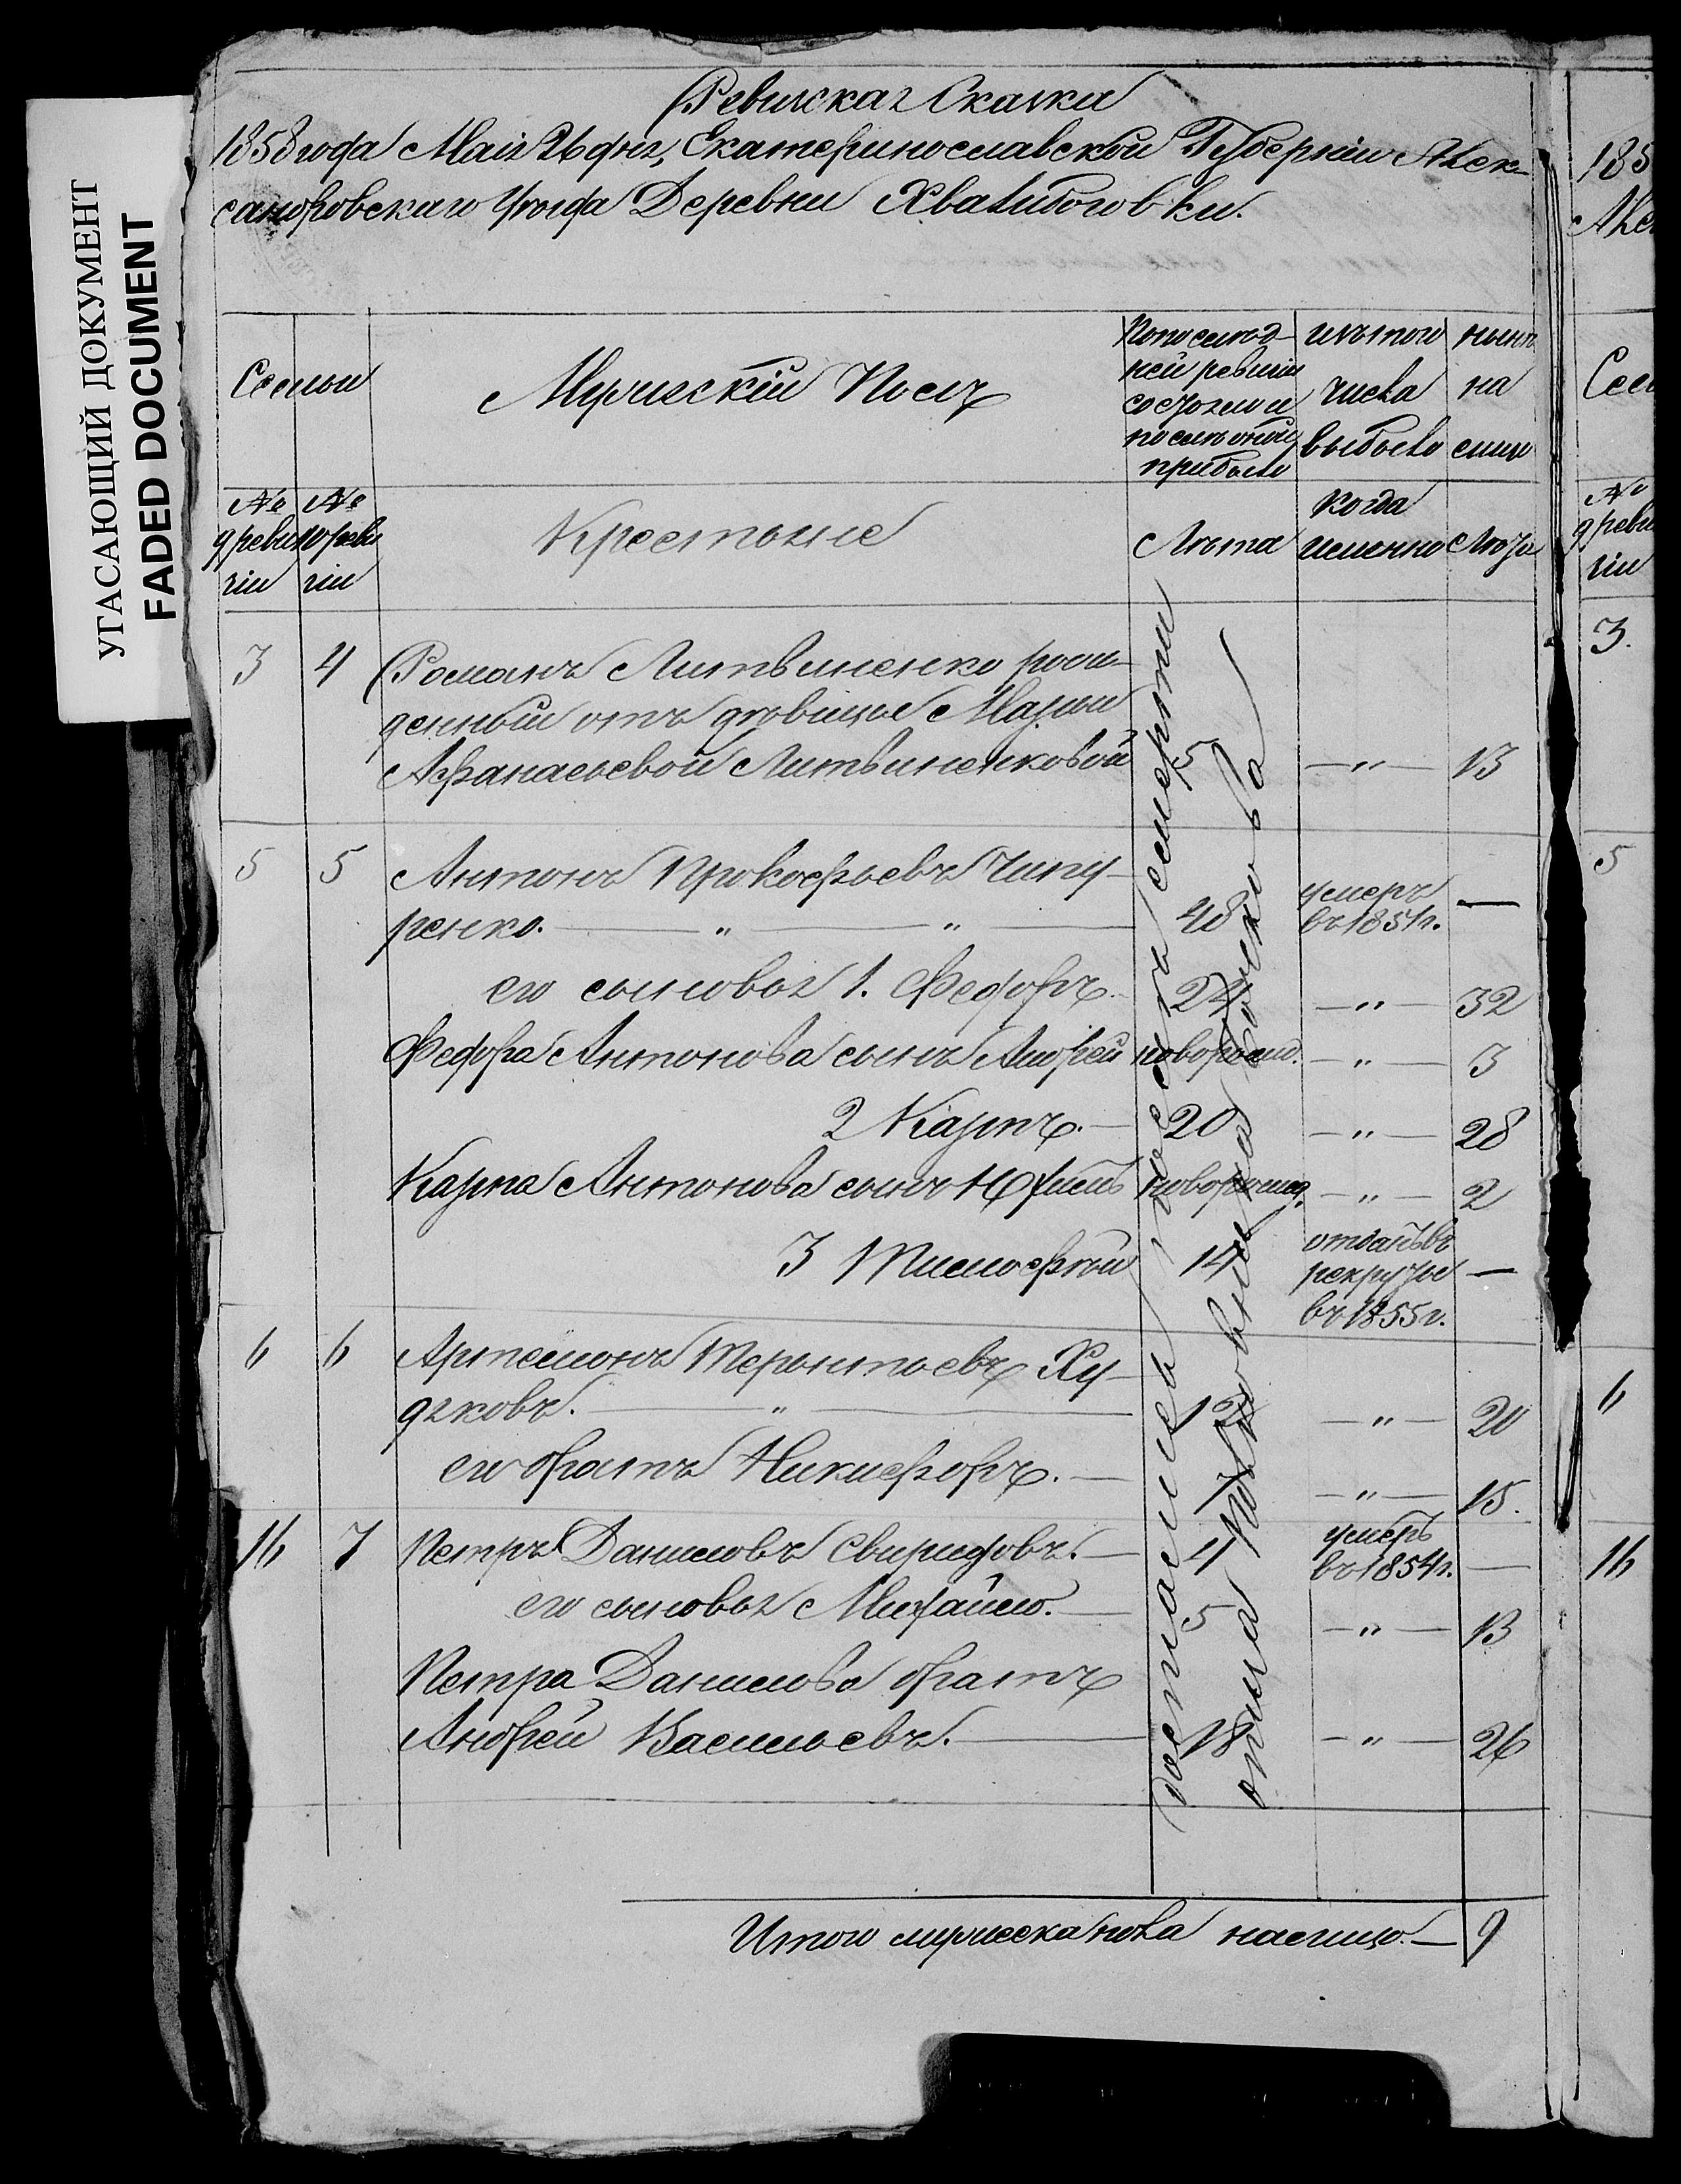 УГАСАЮЩИЙ ДОКУМЕНТ
FADED DOCUMENT
Ревизская Сказка
1858 года Маія 26 дня, Екатеринославской Губерніи Алек-
сандровскаго Уѣзда Деревни Хвалибоговки.
Семьи
Мужескій Полъ
По послѣд-
ней ревизіи
состояло и
послѣ оной
прибыло
изъ того
числа
выбыло
нынѣ
на
лицо
№
9 реви
зіи
№
10 реви
зіи
Крестьяне
Лѣта
Когда
именно
Лѣта
3 4 Романъ Литвиненко рож-
денный отъ дѣвицы Марьи
Афанасьевой Литвиненковой 5 —"— 13
5 5 Антонъ Прокофьевъ Чипу-
ренко. — " — " — 48 умеръ въ 1851 г. —
его сыновья 1. Федоръ. 24 —"— 32
Федора Антонова сынъ Андрей новорожд. —"— 3
2 Карпъ. — 20 —"— 28
Карпа Антонова сынъ новорожд. —"— 2
3 Тимофей 14 отданъ въ рекруты въ 1855 г. —
6 6 Артемонъ Терентьевъ Ху-
дяковъ. — " — 12 —"— 20
его братъ Никифоръ. — 7 —"— 15.
16 7 Петръ Даниловъ Свиридовъ. — 41 умеръ въ 1854 г. —
его сыновья Михайло. — 5 —"— 13
Петра Данилова братъ
Андрей Васильевъ. — 18 —"— 26
досталась послѣ смерти
отца Полковника
Итого мужеска пола налицо. — 9
185
Але
Сем
№
9 реви
зіи
3.
5
6
16